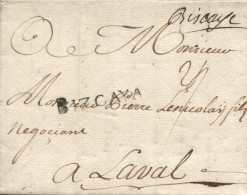 Biscaye
A Monsieur
Monsieur Pierre Lenicolais fils
BIZCAYA
Negociant
a Laval